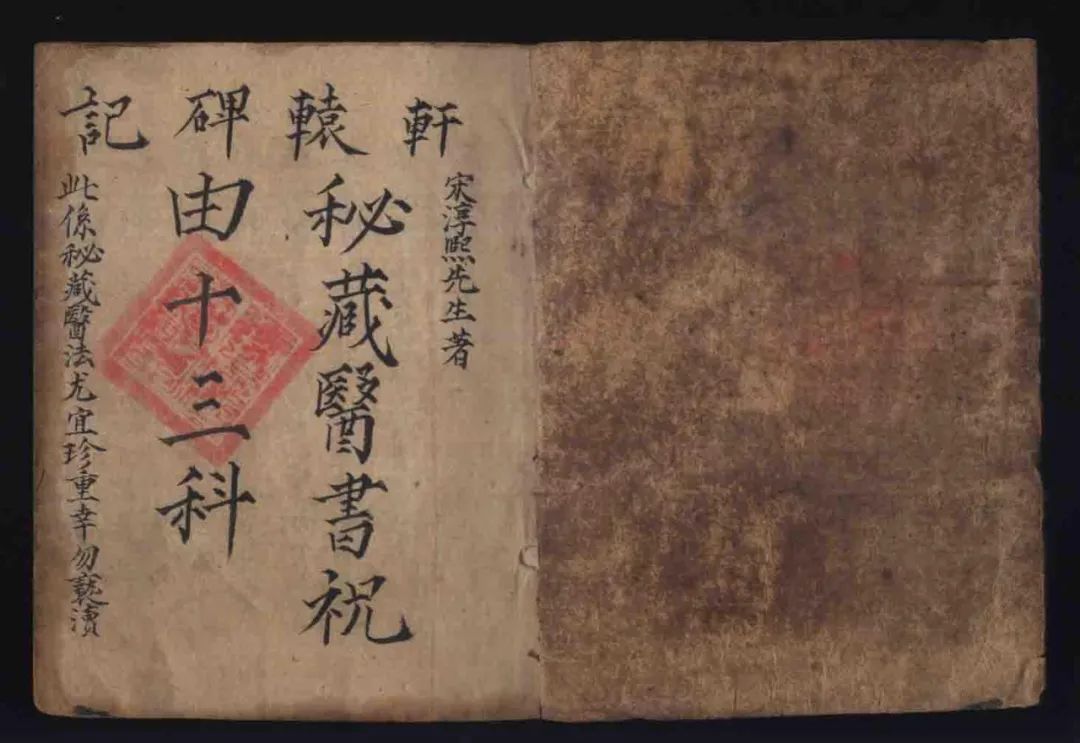 軒轅碑記
宋淳熙先生著
秘藏醫書祝
由十三科
此係秘藏醫法尤宜珍重幸勿褻瀆